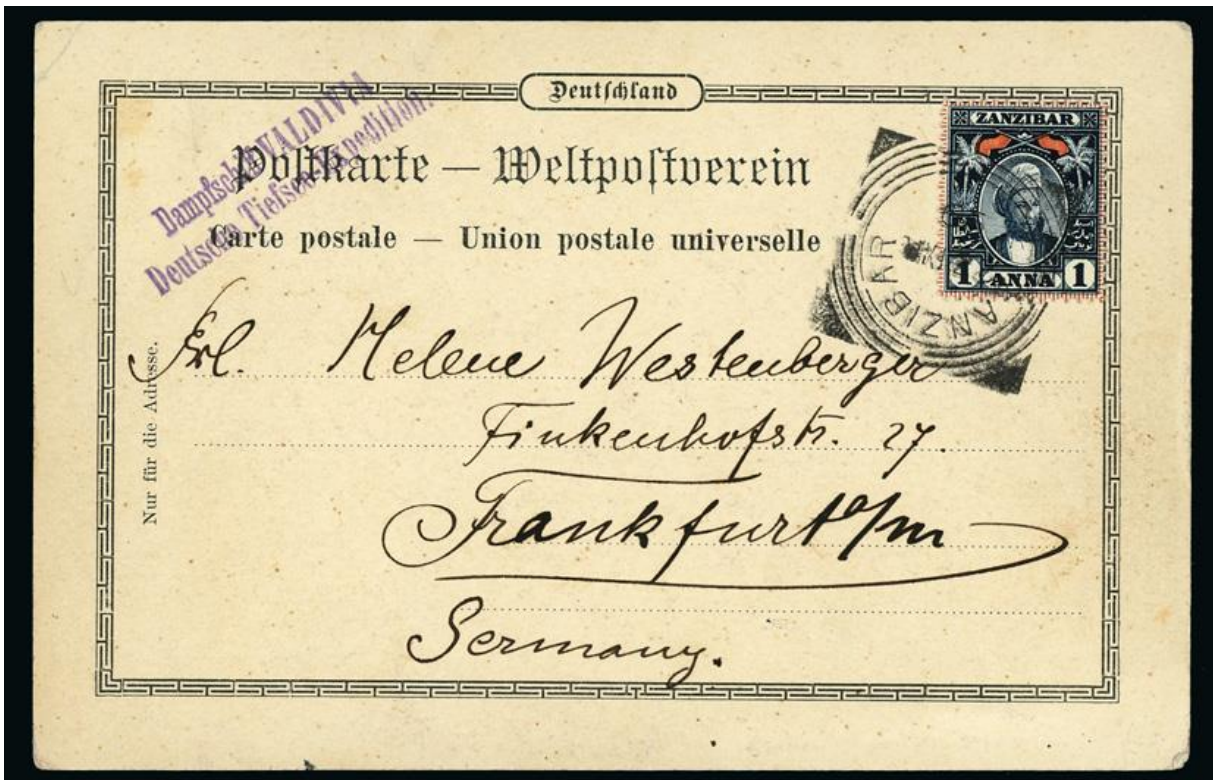 Deutschland
Dampfschiff VALDIVIA
Deutsche Tiefsee-Expedition.
Postkarte — Weltpostverein
Carte postale — Union postale universelle
ZANZIBAR
1 ANNA 1
ZANZIBAR
Frl. Helene Westenberger
Finkenhofstr. 27.
Frankfurt a/M
Germany.
Nur für die Adresse.